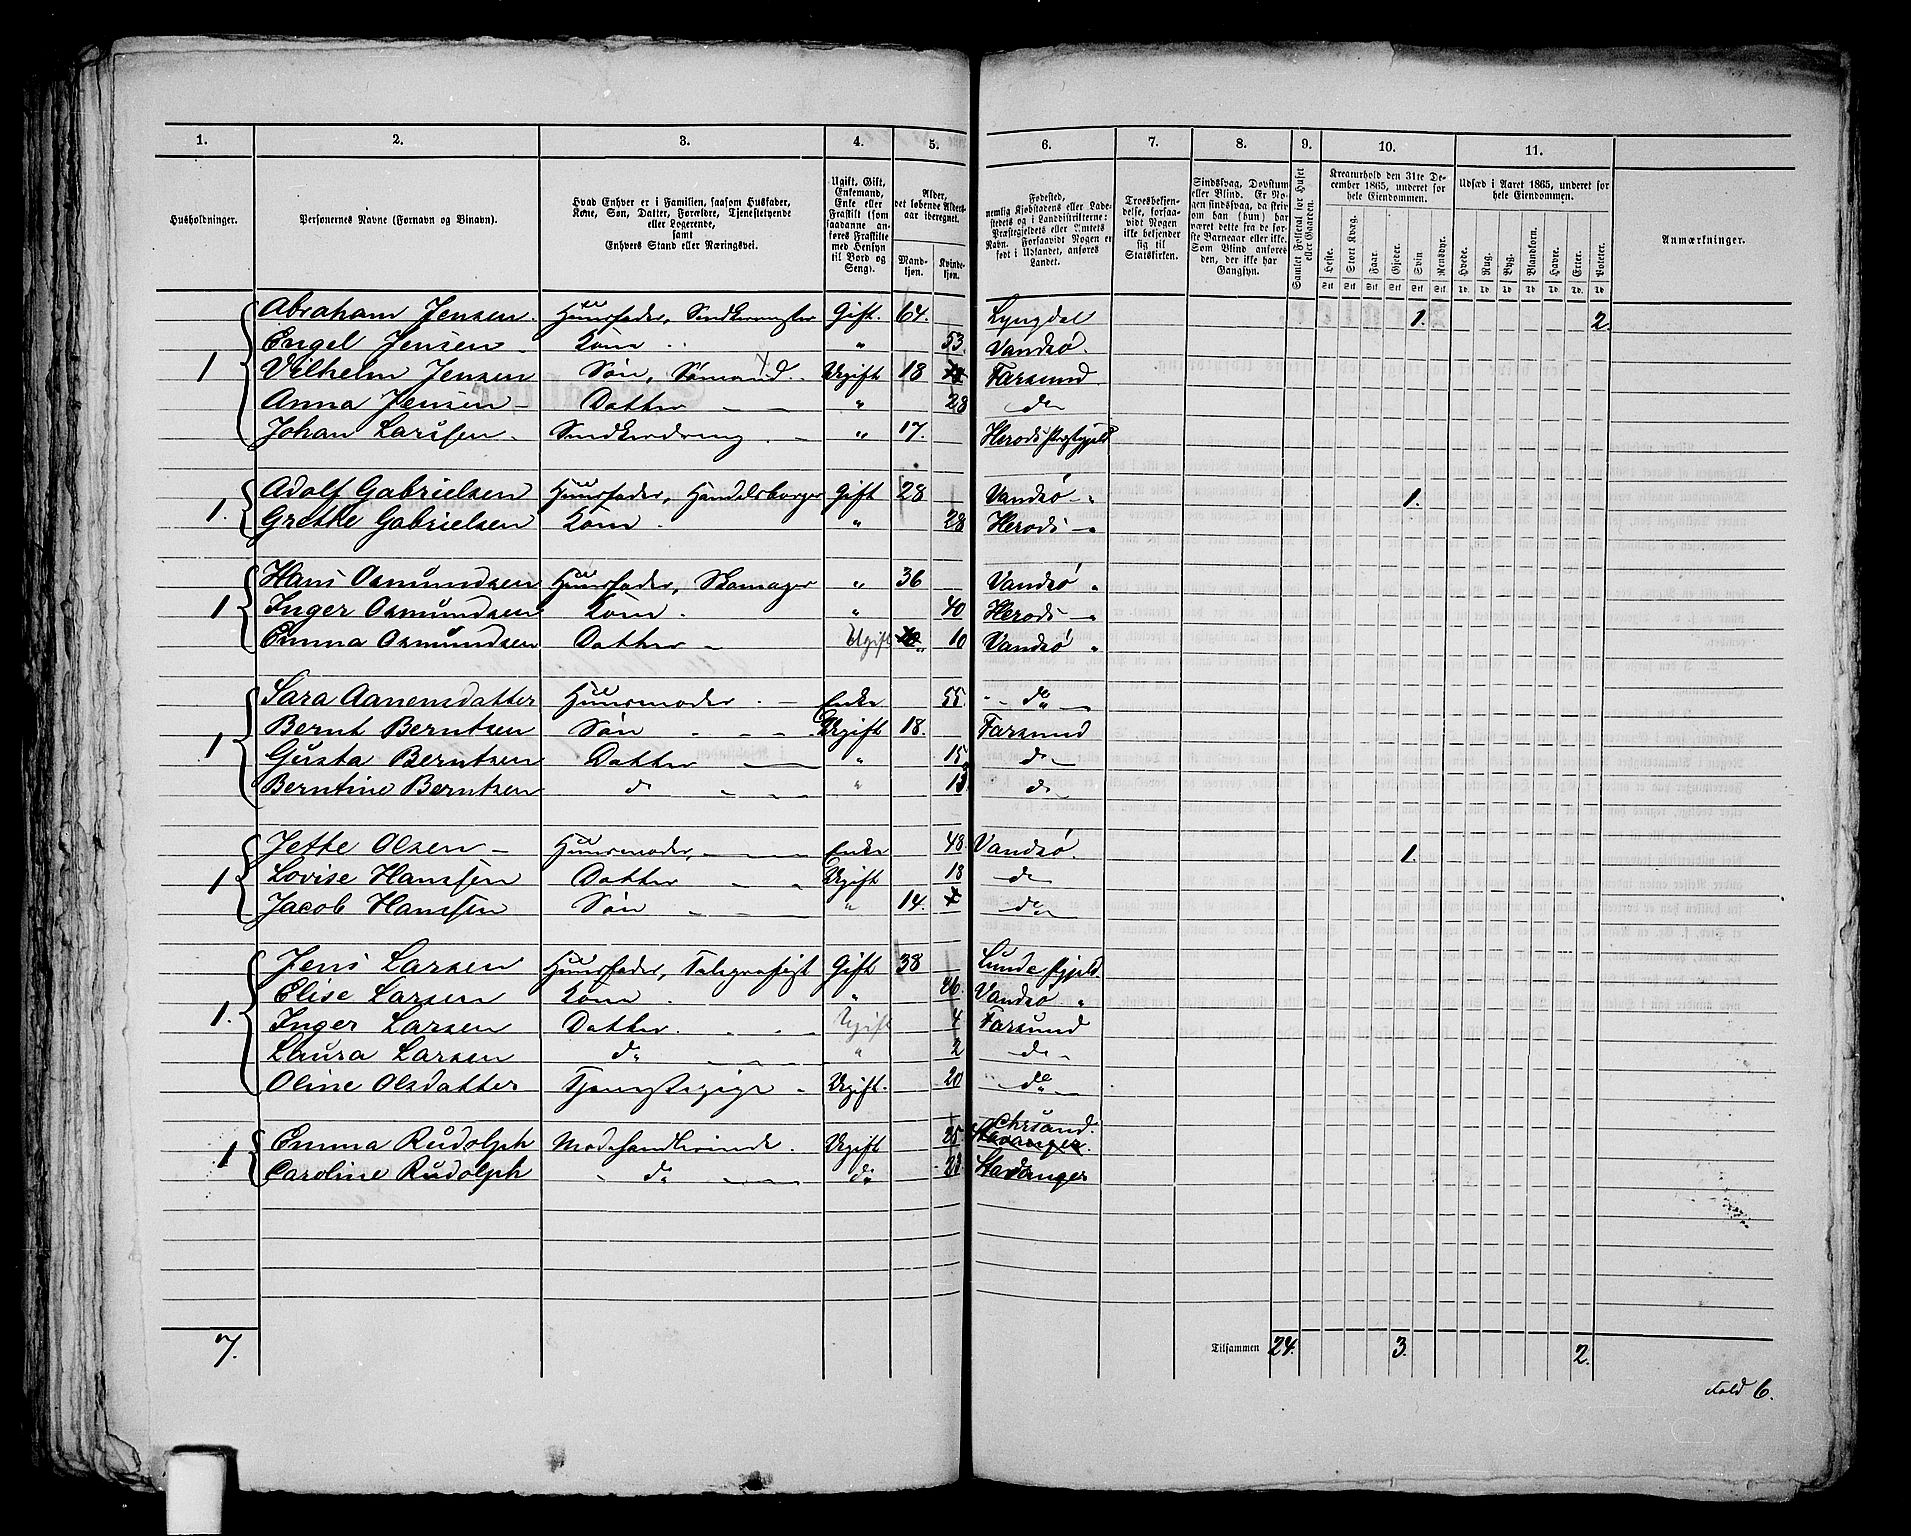 1. 2. 3. 4. 5. 6. 7. 8. 9. 10. 11.
Husholdninger.
Personernes Navne (Fornavn og Binavn).
Hvad Enhver er i Familien, saasom Husfader, Kone, Søn, Datter, Forældre, Tjenestetyende eller Logerende, samt Enhvers Stand eller Næringsvei.
Ugift, Gift, Enkemand, Enke eller Fraskilt (som saadanne anføres Fraskilte med Hensyn til Bord og Seng).
Alder, det løbende Aldersaar iberegnet.
Mandkjøn. Kvindekjøn.
Fødested, nemlig Kjøbstadens eller Ladestedets og i Landdistrikterne: Præstegjeldets eller Amtets Navn. Forsaavidt Nogen er født i Udlandet, anføres Landet.
Troesbekjendelse, forsaavidt Nogen ikke bekjender sig til Statskirken.
Sindssvag, Døvstum eller Blind. Er Nogen sindssvag, da skrives om han (hun) har været dette fra de første Barneaar eller ikke. Som Blind anføres den, der ikke har Gangsyn.
Samlet Folketal for Huset eller Gaarden.
Kreaturhold den 31te December 1865, underet for hele Eiendommen.
Heste. Stort Kvæg. Faar. Gjeder. Svin Rensdyr.
Udsæd i Aaret 1865, underet for hele Eiendommen.
Hvede. Rug. Byg. Blandkorn. Havre. Erter. Poteter.
Anmærkninger.
Abraham Jensen. Huusfader, Gift. 64. Lyngdal 1. 2.
Engel Jensen Kone " 53. Vandsø.
1 Vilhelm Jensen Søn, Sømand. Ugift 18 Farsund
Anna Jensen Datter " 28 do
Johan Larssen. " 17. Herods
Adolf Gabrielsen Huusfader, Handelsborger Gift 28 Vandsø " 1.
1. Grethe Gabrielsen Kone " 28 Herods "
Hans Osmundsen Huusfader, Skomager " 36 Vandsø "
1 Inger Osmundsen Kone. " 40 Herods "
Emma Osmundsen Datter Ugift 10 Vandsø "
Sara Aanensdatter Huusmoder. Enke 55. do
Bernt Berntsen Søn Ugift 18. Farsund
1 Gusta Berntsen Datter " 15 do
Berntine Berntsen do " 13 do
Jette Olsen Huusmoder, Enke 48. Vandsø. 1.
1 Lovise Hanssen Datter Ugift 18 do
Jacob Hanssen Søn " 14. do
Jens Larsen Huusfader, Telegrafist Gift 38 Lunde Pgjeld.
Elise Larsen Kone " 26. Vandsø "
1. Inger Larsen Datter. Ugift 4 Farsund
Laura Larsen do " 2 do
Oline Olsdatter Tjenestepige Ugift. 20 do
Chrsand.
1 Emma Rudolph Modehandlerinde. Ugift 25 Stavanger.
Caroline Rudolph do do 23 Stavanger
7. Tilsammen 24. 3. 2.
Fold 6.